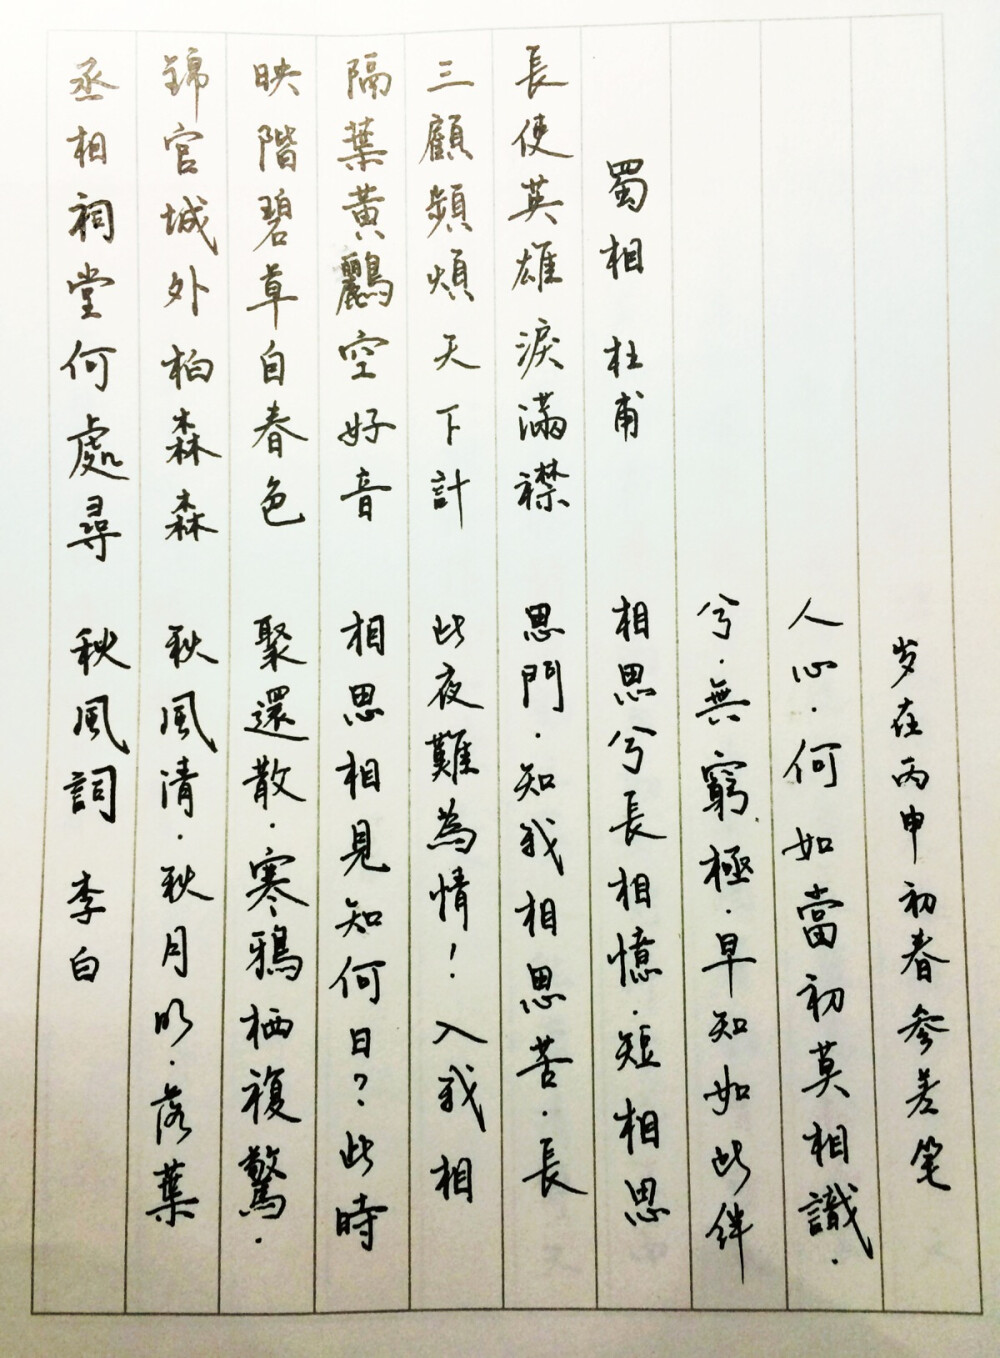 丞相祠堂何處尋
錦官城外柏森森
映階碧草自春色
隔葉黃鸝空好音
三顧頻煩天下計
長使英雄淚滿襟
蜀相 杜甫
秋風詞 李白
秋風清·秋月明·落葉
聚還散·寒鴉栖複驚·
相思相見知何日？此時
此夜難為情！入我相
思門·知我相思苦·長
相思兮長相憶·短相思
兮·無窮極·早知如此絆
人心·何如當初莫相識·
岁在丙申初春參差笔